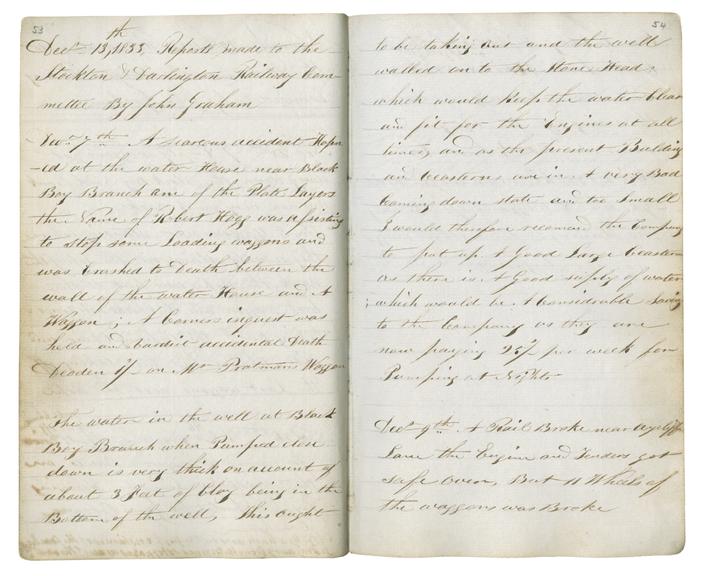 53
Decr 13th, 1833, Reports made to the
Stockton & Darlington Railway Com-
mettee By John Graham
Decr 7th A searous accident Hapn
-ed at the water House near Black
Boy Branch one of the Plate Layers
the Name of Robert Hogg was assisting
to stop some Loading waggons and
was Crashed to Death between the
wall of the water House and A
Waggon; A Coroners inquest was
held and bardict accidental Death
Deoden 1/- on Mr Waggon
The water in the well at Black
Boy Branch when Pumped close
down is very thick on account of
about 3 Feet of Clay being in the
Bottom of the well, this ought
54
to be taking out and the well
walled on to the Stone Head
which would keep the water Clear
an fit for the Engines at all
times, and as the present Building
an Ceasterns are in A very Bad
Coming down state and too Small
I would therfore recomend the Company
to put up A Good Large Ceastern
as there is A Good supply of water
which would be A Considerable Saving
to the Company as they are
now paying 25/ per week for
Pumping at Nights
Decr 9th A Rail Broke near Aycliff
Lane the Engine and Tenders got
safe over, But 11 Wheels of
the waggons was Broke